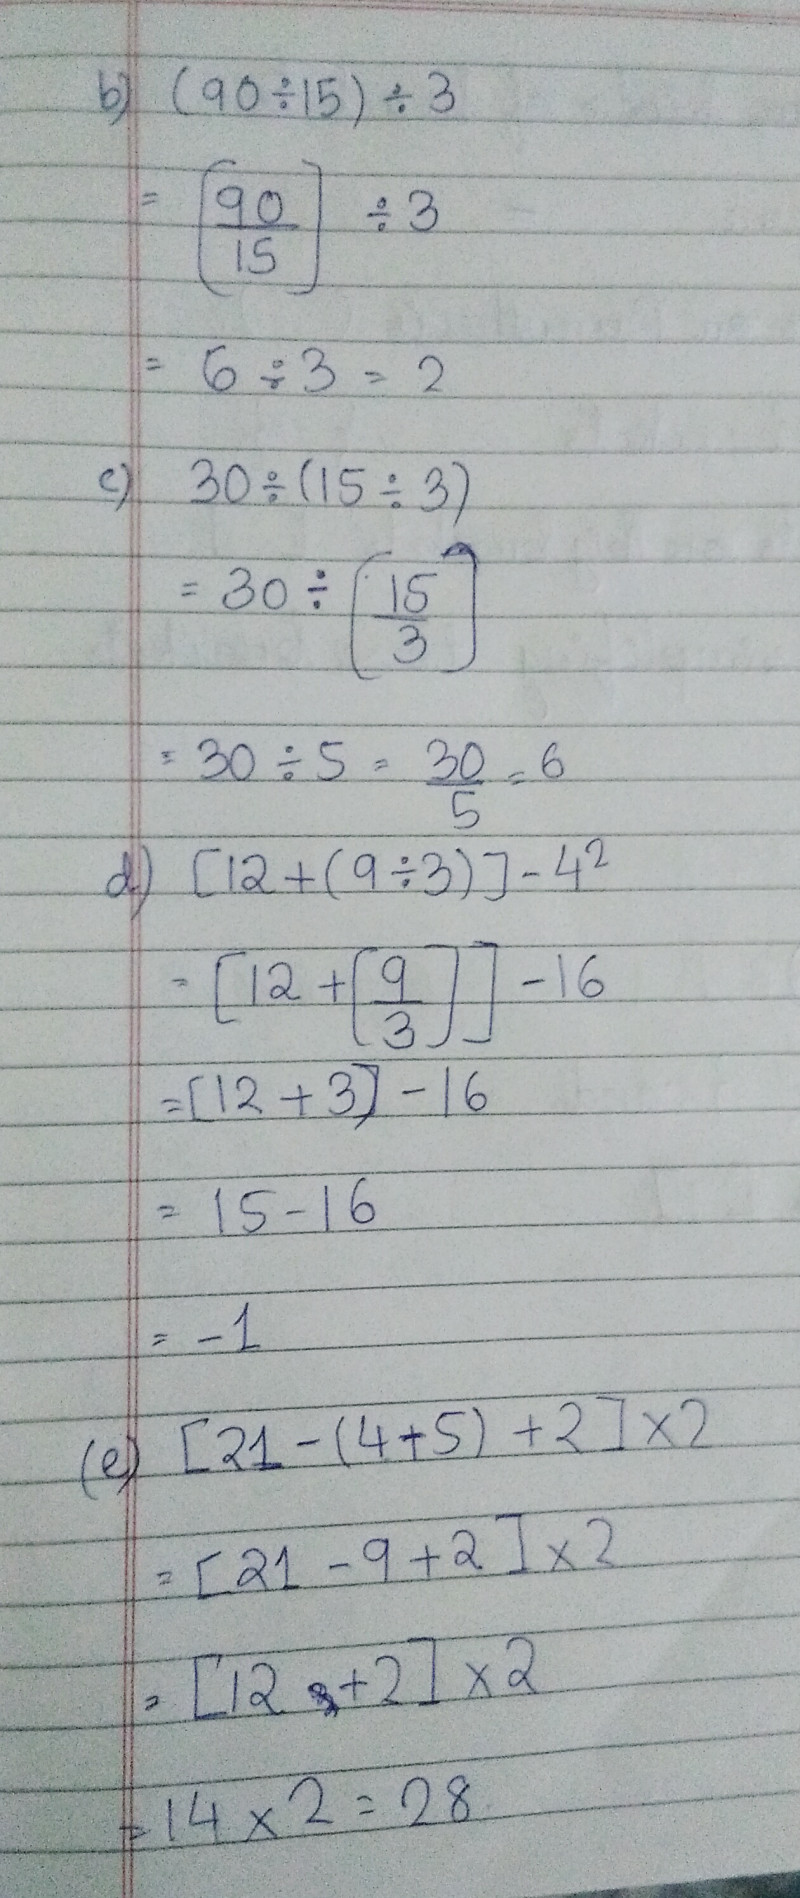 b) (90÷15) ÷ 3
= [90/15] ÷ 3
= 6 ÷ 3 = 2
c) 30÷(15÷3)
= 30 ÷ [15/3]
= 30 ÷ 5 = 30/5 = 6
d) [12+(9÷3)]-4²
= [12 + [9/3)] - 16
= [12 + 3] - 16
= 15 - 16
= -1
(e) [21-(4+5)+2]×2
= [21 - 9 + 2] × 2
= [12 +2] × 2
= 14 × 2 = 28